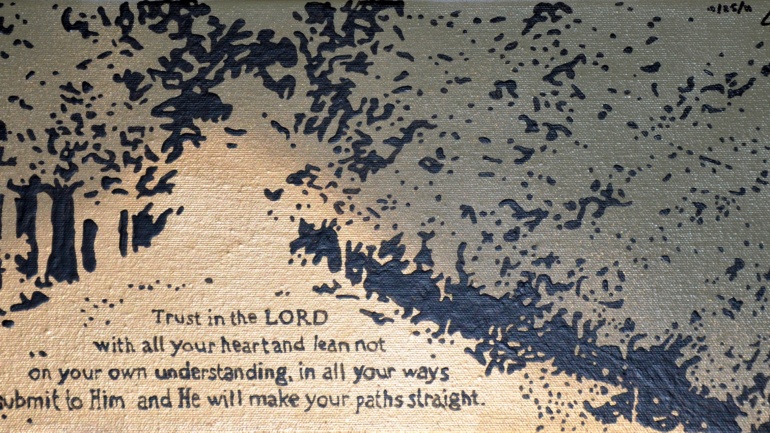 Trust in the LORD
with all your heart and lean not
on your own understanding, in all your ways
submit to Him and He will make your paths straight.